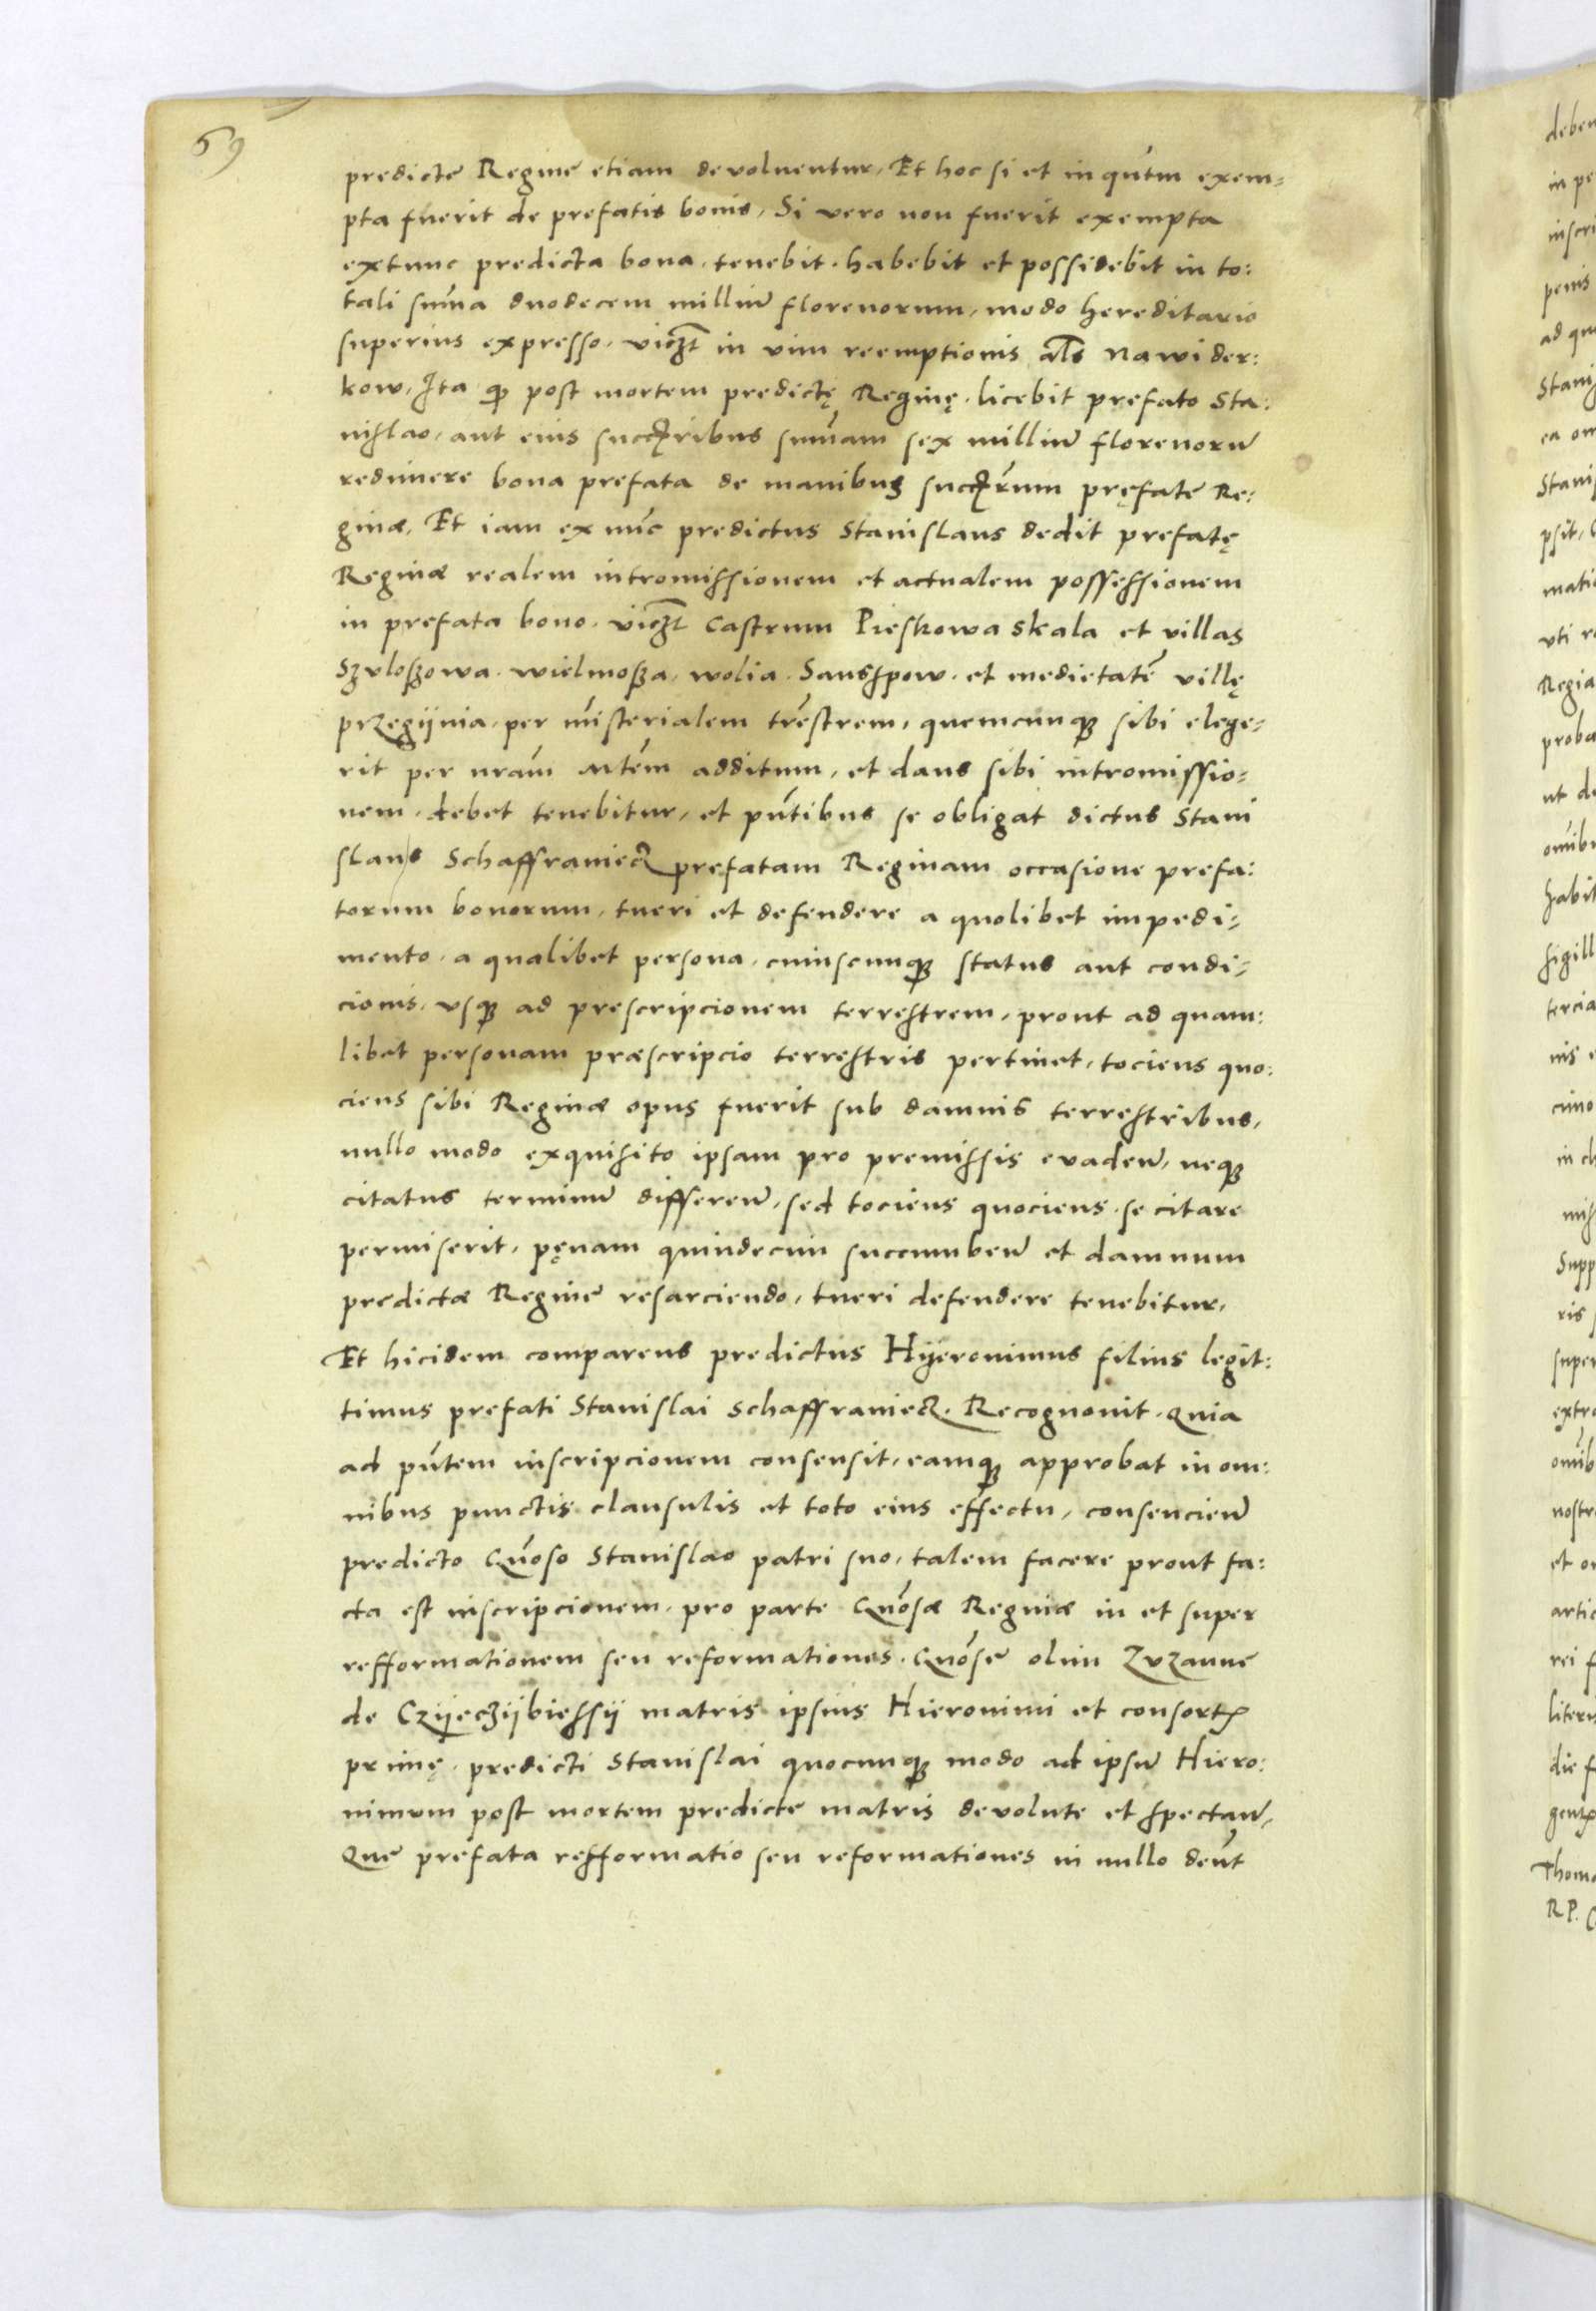 69
predicte Regine etiam devoluentur, Et hoc si et in qūtm exem=
pta fuerit de prefatis bonis, Si vero non fuerit exempta
extunc predicta bona, tenebit, habebit et possidebit in to:
tali sum̄a duodecem milliū florenorum, modo hereditario
superius expresso, viczt in vim reemptionis als Nawider:
kow, Ita qp post mortem predictę Reginę, licebit prefato Sta:
nislao, aut eius succribus sum̄am sex milliū florenorū
redimere bona prefata de manibus succrum pręfate Re:
ginæ, Et iam ex nūc predictus Stanislaus dedit prefatę
Reginæ realem intromissionem et actualem possessionem
in prefata bono, viczt Castrum Pieskowa Skala et villas
Szvloszowa, wielmosza, wolia, Sanspow, et medietatē villę
przegijnia, per mīsterialem trēstrem, quemcunqȝ sibi elege=
rit per nrām Mtēm additum, et dans sibi intromissio=
nem, debet tenebitur, et pūtibus se obligat dictus Stani
slaus Schaffraniecz prefatam Reginam occasione prefa:
torum bonorum, tueri et defendere a quolibet impedi=
mento, a qualibet persona, cuiuscunqȝ status aut condi=
cionis, vsqȝ ad prescripcionem terrestrem, prout ad quam:
libet personam præscripcio terrestris pertinet, tociens quo:
ciens sibi Reginæ opus fuerit sub damnis terrestribus,
nullo modo exquisito ipsam pro premissis evadeñ, neqȝ
citatus terminū differeñ, sed tociens quociens se citare
permiserit, pęnam quindecim succumbeñ et damnum
predictæ Regine resarciendo, tueri defendere tenebitur,
Et hicidem comparens predictus Hijeronimus filius legit:
timus prefati Stanislai Schaffraniecz, Recognouit, quia
ad pūtem inscripcionem consensit, eamqȝ approbat in om:
nibus punctis clausulis et toto eius effectu, consencieñ
predicto Gnōso Stanislao patri suo, talem facere prout fa:
cta est inscripcionem, pro parte Gnōsæ Reginæ in et super
refformationem seu reformationes, Gnōse olim Zvzanne
de Czijeczijbiessij matris ipsius Hieronimi et consortꝭ
primę, predicti Stanislai quocunqȝ modo ad ipsū Hiero:
nimvm post mortem predicte matris devolute et spectañ,
Que prefata refformatio seu reformationes in nullo debt